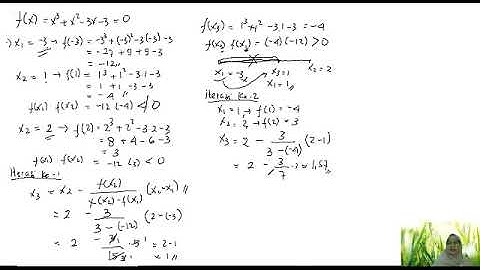 f(x) = x³ + x² - 3x - 3 = 0
x₁ = -3 → f(-3) = -3³ + (-3)² - 3(-3) - 3
= -27 + 9 + 9 - 3
= -12
x₂ = 1 → f(1) = 1³ + 1² - 3.1 - 3
= 1 + 1 - 3 - 3
= -4
f(x₁) f(x₂) = -12 (-4) < 0
x₂ = 2 → f(2) = 2³ + 2² - 3.2 - 3
= 8 + 4 - 6 - 3
= 3
f(x₁) f(x₂) = -12 (3) < 0
Iterasi ke-1
x₃ = x₂ - f(x₂) / f(x₂) - f(x₁) (x₂ - x₁)
= 2 - 3 / 3 - (-12) (2 - (-3))
= 2 - 3 / 15 . 5 = 2 - 1
= 1
f(x₃) = 1³ + 1² - 3.1 - 3 = -4
f(x₁) f(x₃) = (-4)(-12) > 0
x₁ = -3 x₃ = 1 x₂ = 2
x₁ = 1
Iterasi ke-2
x₁ = 1 → f(1) = -4
x₂ = 2 → f(2) = 3
x₃ = 2 - 3 / 3 - (-4) (2 - 1)
= 2 - 3 / 7 = 1,57